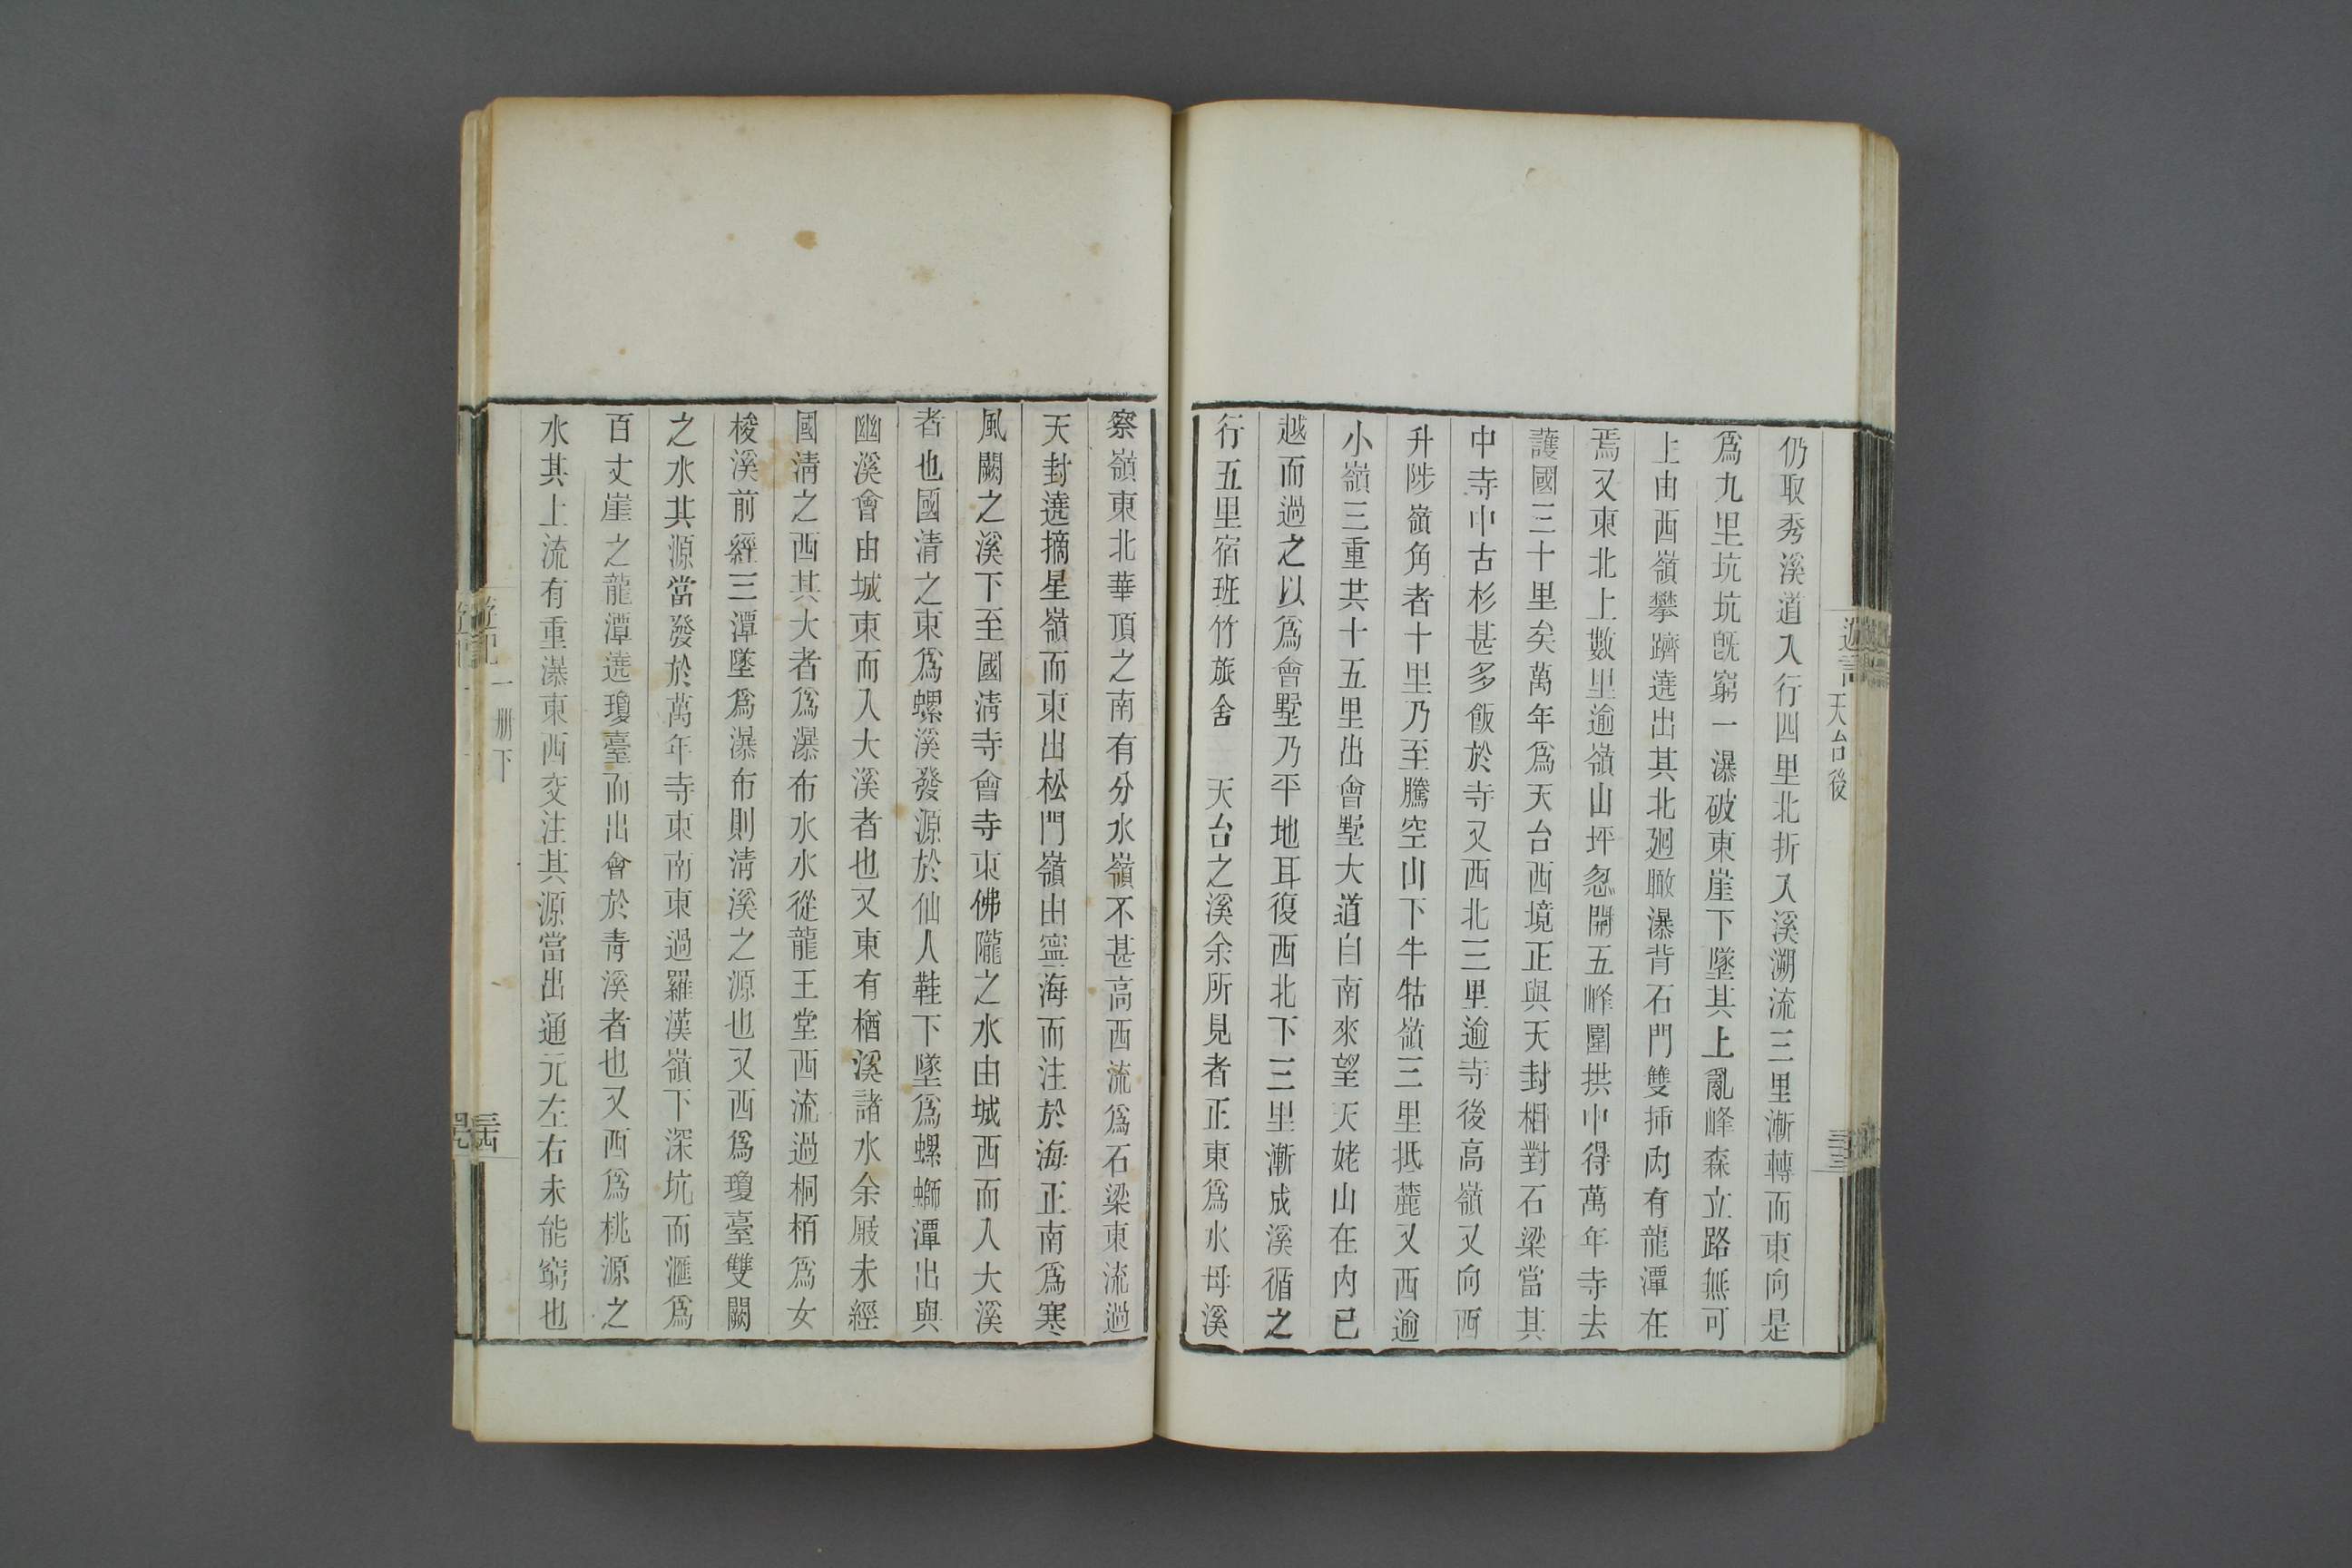 天台後
仍取秀溪道入行四里北折入溪溯流三里漸轉而東向是
爲九里坑坑旣窮一瀑破東崖下墜其上亂峰森立路無可
上由西嶺攀躋遶出其北廻瞰瀑背石門雙揷內有龍潭在
焉又東北上數里逾嶺山坪忽開五峰圍拱中得萬年寺去
護國三十里矣萬年爲天台西境正與天封相對石梁當其
中寺中古杉甚多飯於寺又西北三里逾寺後高嶺又向西
升陟嶺角者十里乃至騰空山下牛牯嶺三里抵麓又西逾
小嶺三重共十五里出會墅大道自南來望天姥山在内已
越而過之以爲會墅乃平地耳復西北下三里漸成溪循之
行五里宿班竹旅舍　天台之溪余所見者正東爲水母溪
察嶺東北華頂之南有分水嶺不甚高西流爲石梁東流過
天封遶摘星嶺而東出松門嶺由寧海而注於海正南爲寒
風闕之溪下至國淸寺會寺東佛隴之水由城西而入大溪
者也國清之東爲螺溪發源於仙人鞋下墜爲螺螄潭出與
幽溪會由城東而入大溪者也又東有楢溪諸水余屐未經
國淸之西其大者爲瀑布水水從龍王堂西流過桐栢爲女
梭溪前經三潭墜爲瀑布則淸溪之源也又西爲瓊臺雙闕
之水其源當發於萬年寺東南東過羅漢嶺下深坑而滙爲
百丈崖之龍潭遶瓊臺而出會於靑溪者也又西爲桃源之
水其上流有重瀑東西交注其源當出通元左右未能窮也
一册下